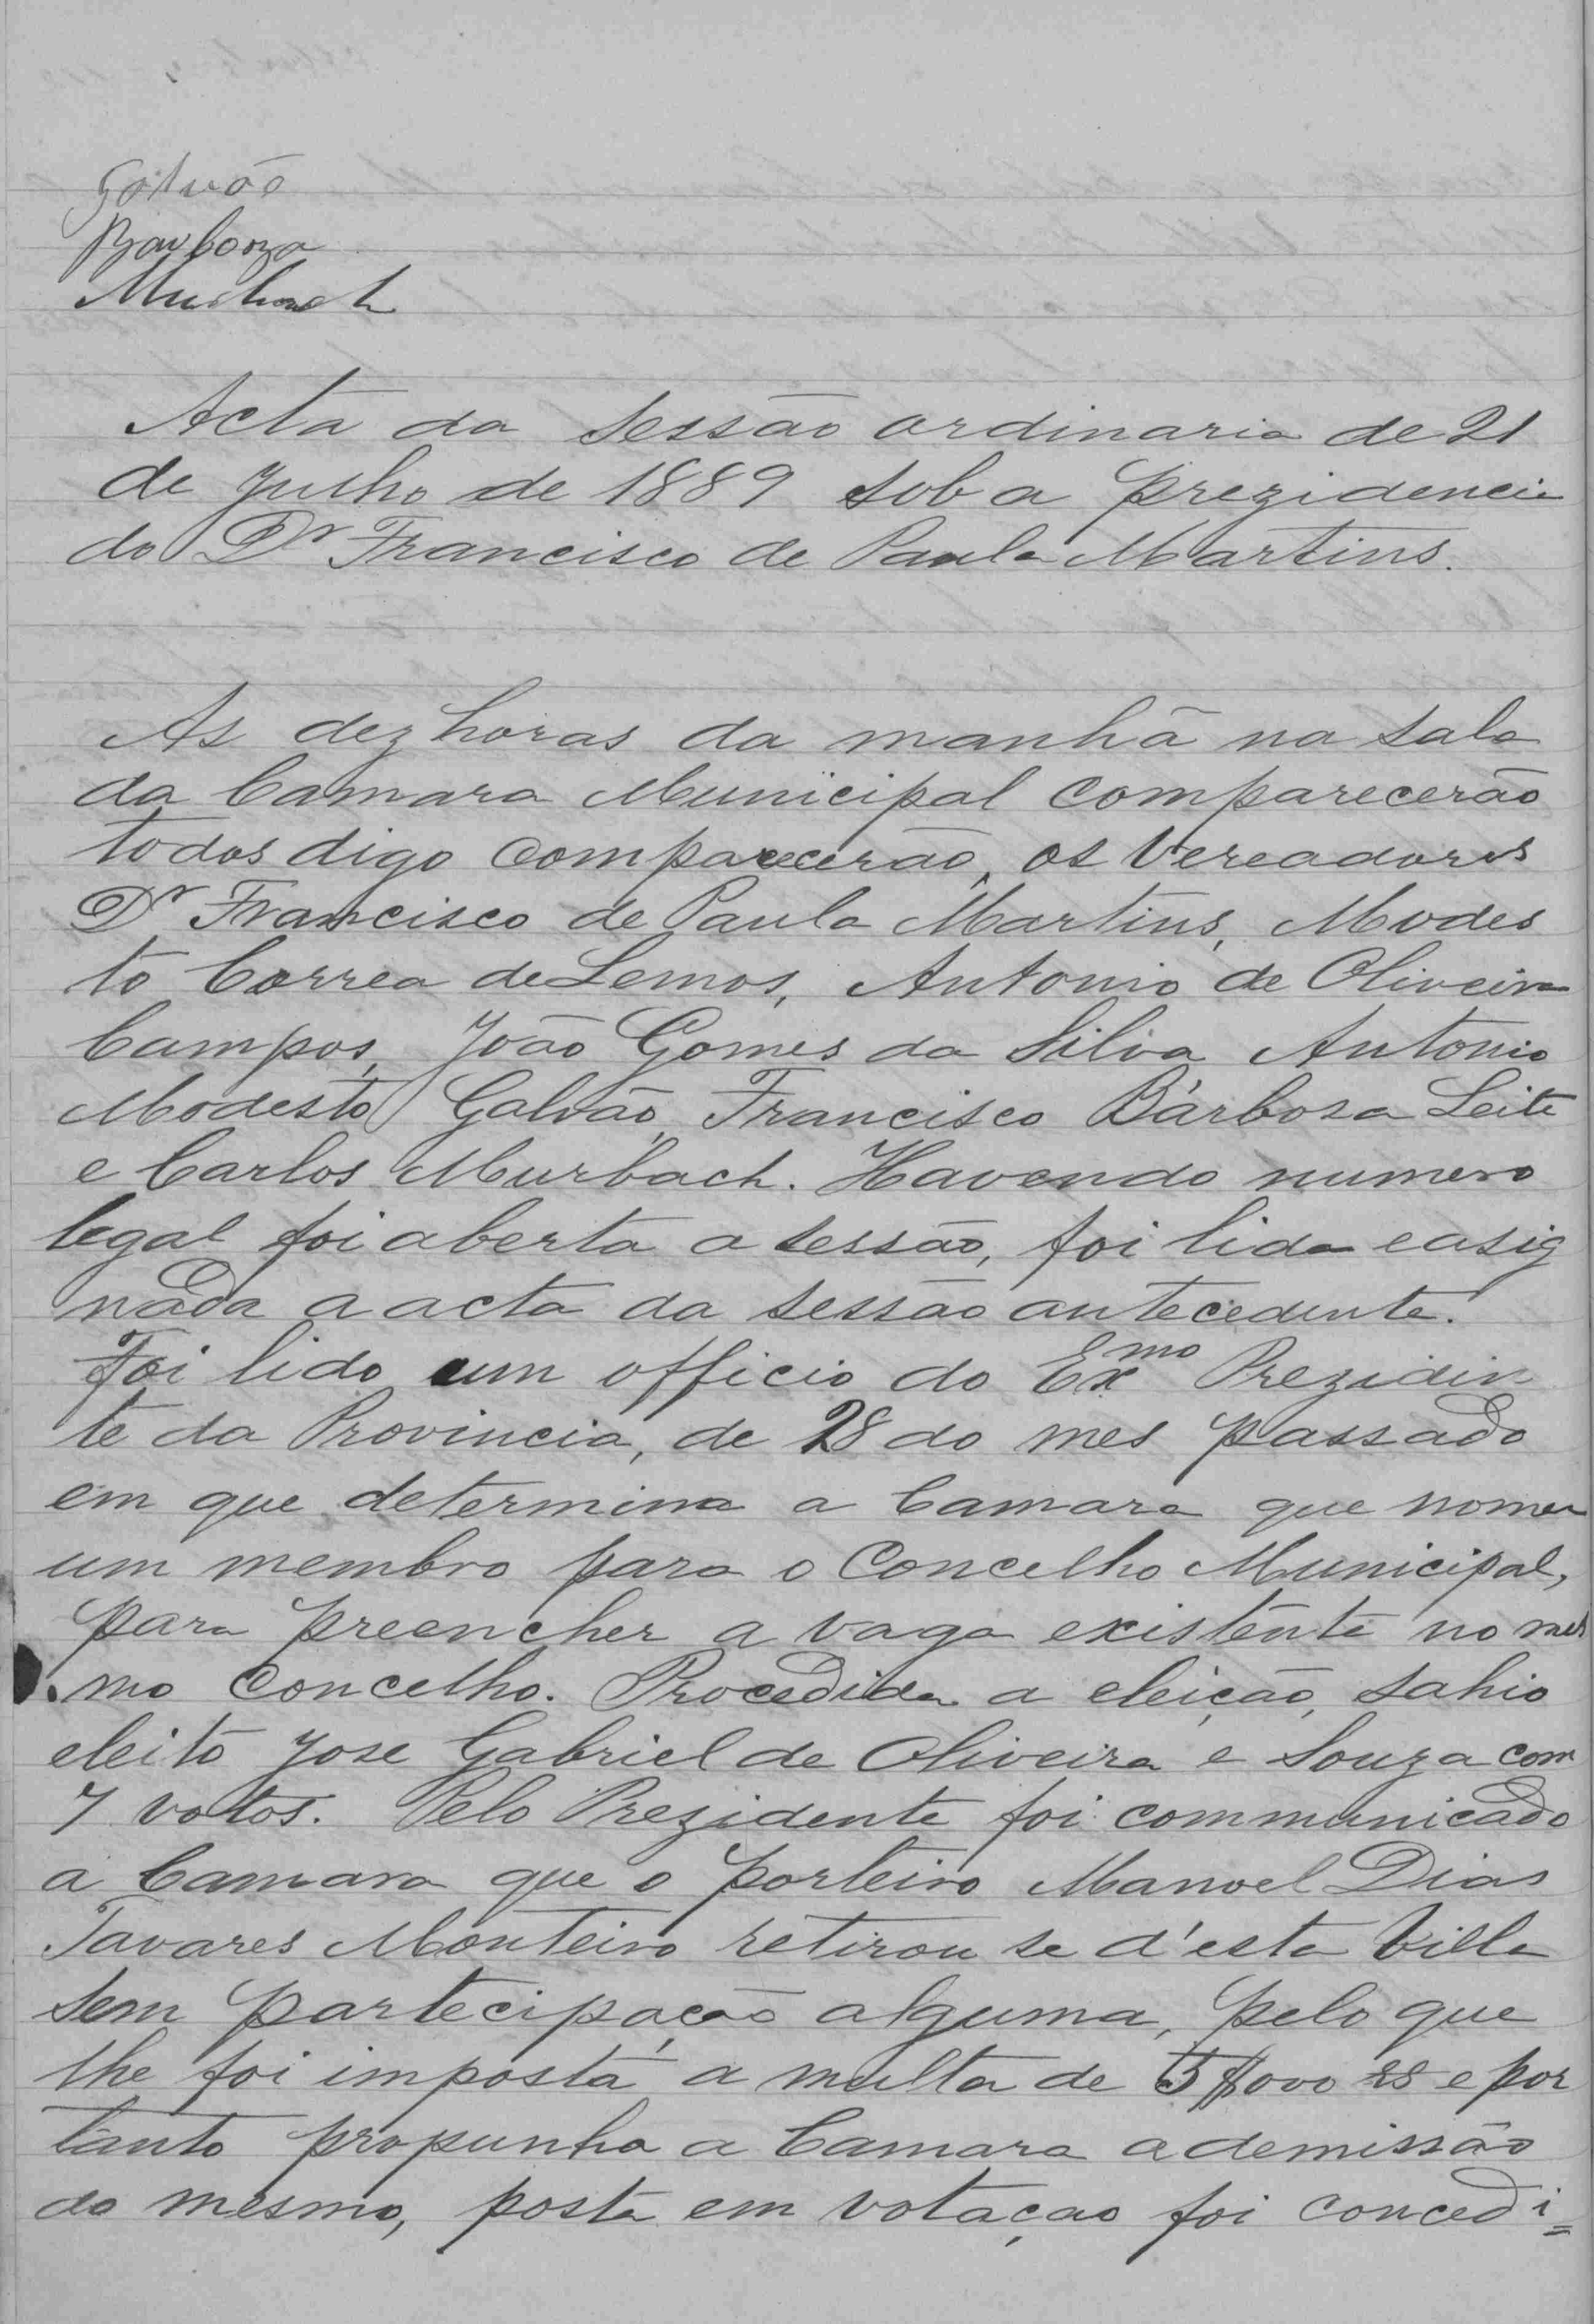 Galvão
Barboza
Murbach
Acta da sessão ordinaria de 21
de Julho de 1889 sob a prezidencia
do Dr Francisco de Paula Martins.
As dez horas da manhã na sala
da Camara Municipal comparecerão
todos digo comparecerão, os Vereadores
Dr Francisco de Paula Martins, Modes
to Correa de Lemos, Antonio de Oliveira
Campos, João Gomes da Silva Antonio
Modesto Galvão, Francisco Barbosa Leite
e Carlos Murbach. Havendo numero
legal foi aberta a sessão, foi lida e asig
nada a acta da sessão antecedente.
Foi lido um officio do Exmo Prezidin
te da Provincia, de 28 do mes passado
em que determina a Camara que nomei
um membro para o Concelho Municipal,
para preencher a vaga existente no mes
mo Concelho. Procedida a eleição, sahio
eleito Jose Gabriel de Oliveira e Souza com
7 votos. Pelo Prezidente foi communicado
a Camara que o porteiro Manoel Dias
Tavares Monteiro retirou se d'esta Villa
sem partecipação alguma, pelo que
lhe foi imposta a multa de 5$000 rs e por
tanto propunha a Camara a demissão
do mesmo, posta em votação foi concedi=